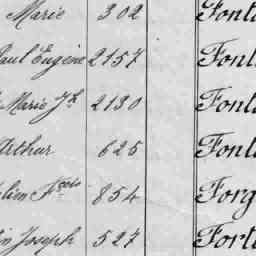 Marie 302 Font
Paul Eugène 2157 Font
Marie Jh 2130 Font
Arthur 625 Font
854 Forg
Joseph 527 Fort